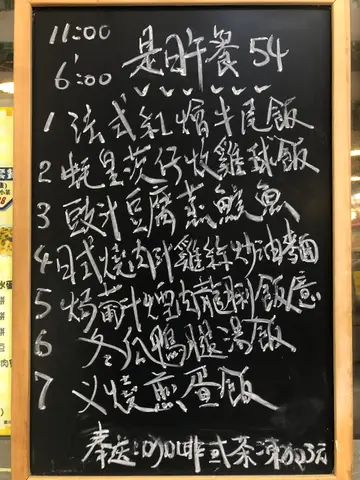 11:00
6:00
是日午餐 54
1 法式紅燴牛尾飯
2 蚝皇茨仔炆雞球飯
3 豉汁豆腐蒸鯇魚
4 日式燒肉汁雞絲炒油麵
5 焗葡汁烟肉龍脷飯/意
6 冬瓜鴨腿湯飯
7 叉燒煎蛋飯
奉送:咖啡或茶 凍加3元